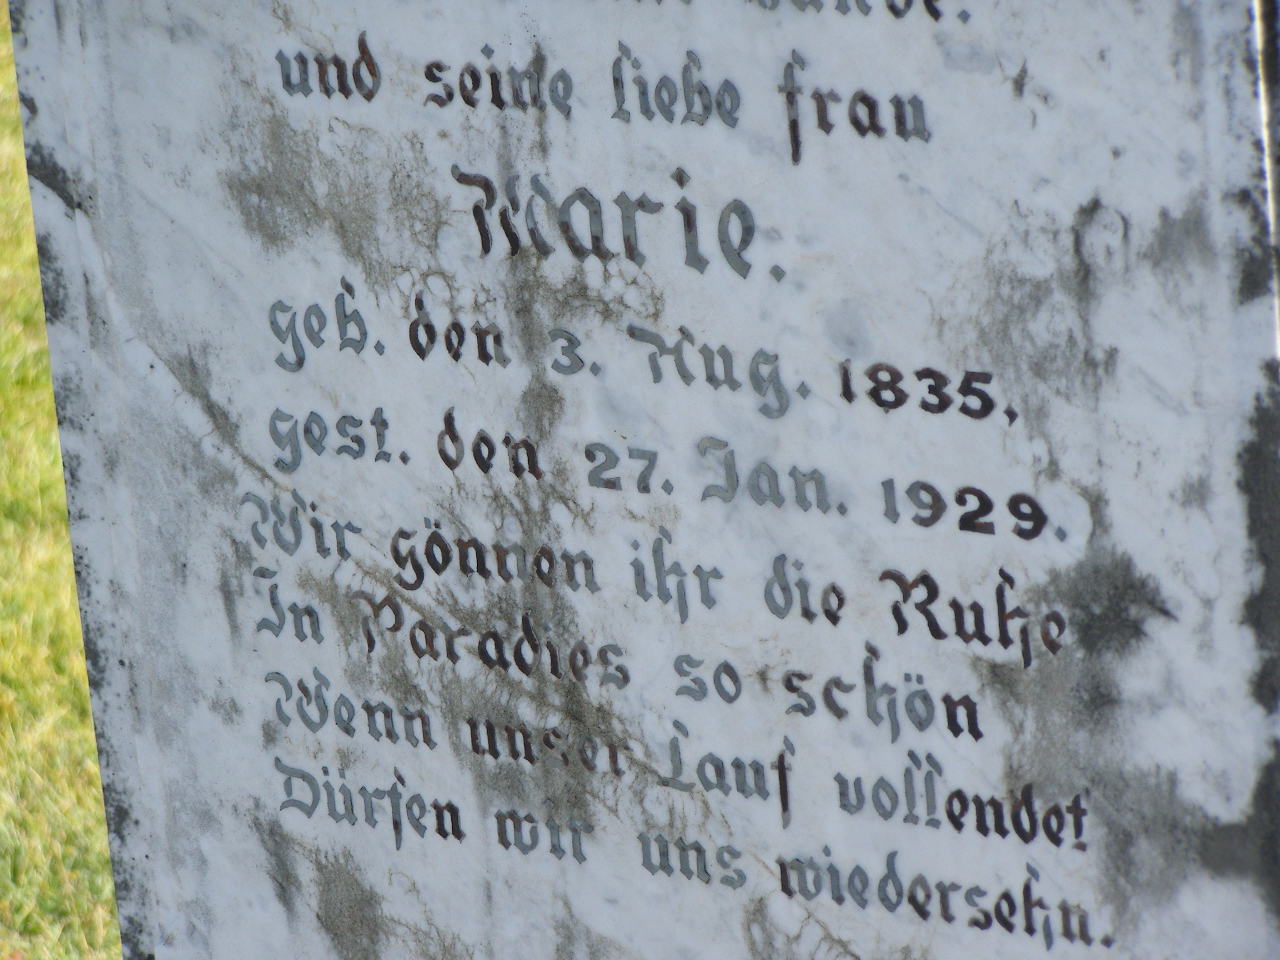 und seine liebe frau
Marie.
geb. den 3. Aug. 1835.
gest. den 27. Jan. 1929.
Wir gönnen ihr die Ruhe
In Paradies so schön
Wenn unser Lauf vollendet
Dürfen wir uns wiedersehn.